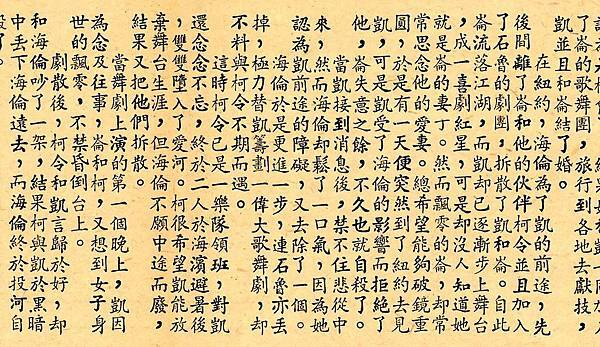 了崙的歌舞團，旅行到各地去獻技，
凱並且和崙結了婚。
在紐約，海倫為了凱的前途，先
後間離了崙和他的伙伴柯令並且加入
了石魯的劇團，拆散了凱和崙。自此
崙流落江湖，而凱却已逐漸步上舞台
，成一喜劇紅星，可是却沒人知道她
就是崙的妻子。然而飄零的崙，却常
常思念他的愛妻。總希望能夠破鏡重
圓，於是有一天便突然到了紐約去見
凱，可是凱受了海倫的影響而拒絕了
他，崙失意之餘，不久也就自殺了。
當凱接到消息後，禁不住悲從中
來，然而海倫却鬆了一口氣，因為她
認為凱前途的障礙，又去除了一個。
海倫於是更進一步，連石魯亦丟
掉，極力替凱籌劃一偉大歌舞劇，却
不料與柯令不期而遇。
這時柯令已是一樂隊領班，對凱
還念念不忘，終於二人於海濱避暑後
，雙雙墮入了愛河。柯很希望凱能放
棄舞台生涯，但海倫不願中途而廢，
結果又把他們拆散。
當舞劇上演的第一個晚上，凱因
為念及往事，崙和柯，又想到女子身
世的飄零，不禁昏倒台上。
劇散後，柯令和凱言歸於好，却
和海倫吵了一架，結果柯與凱於黑暗
中丟下海倫遠去，而海倫終於投河自
殺了。